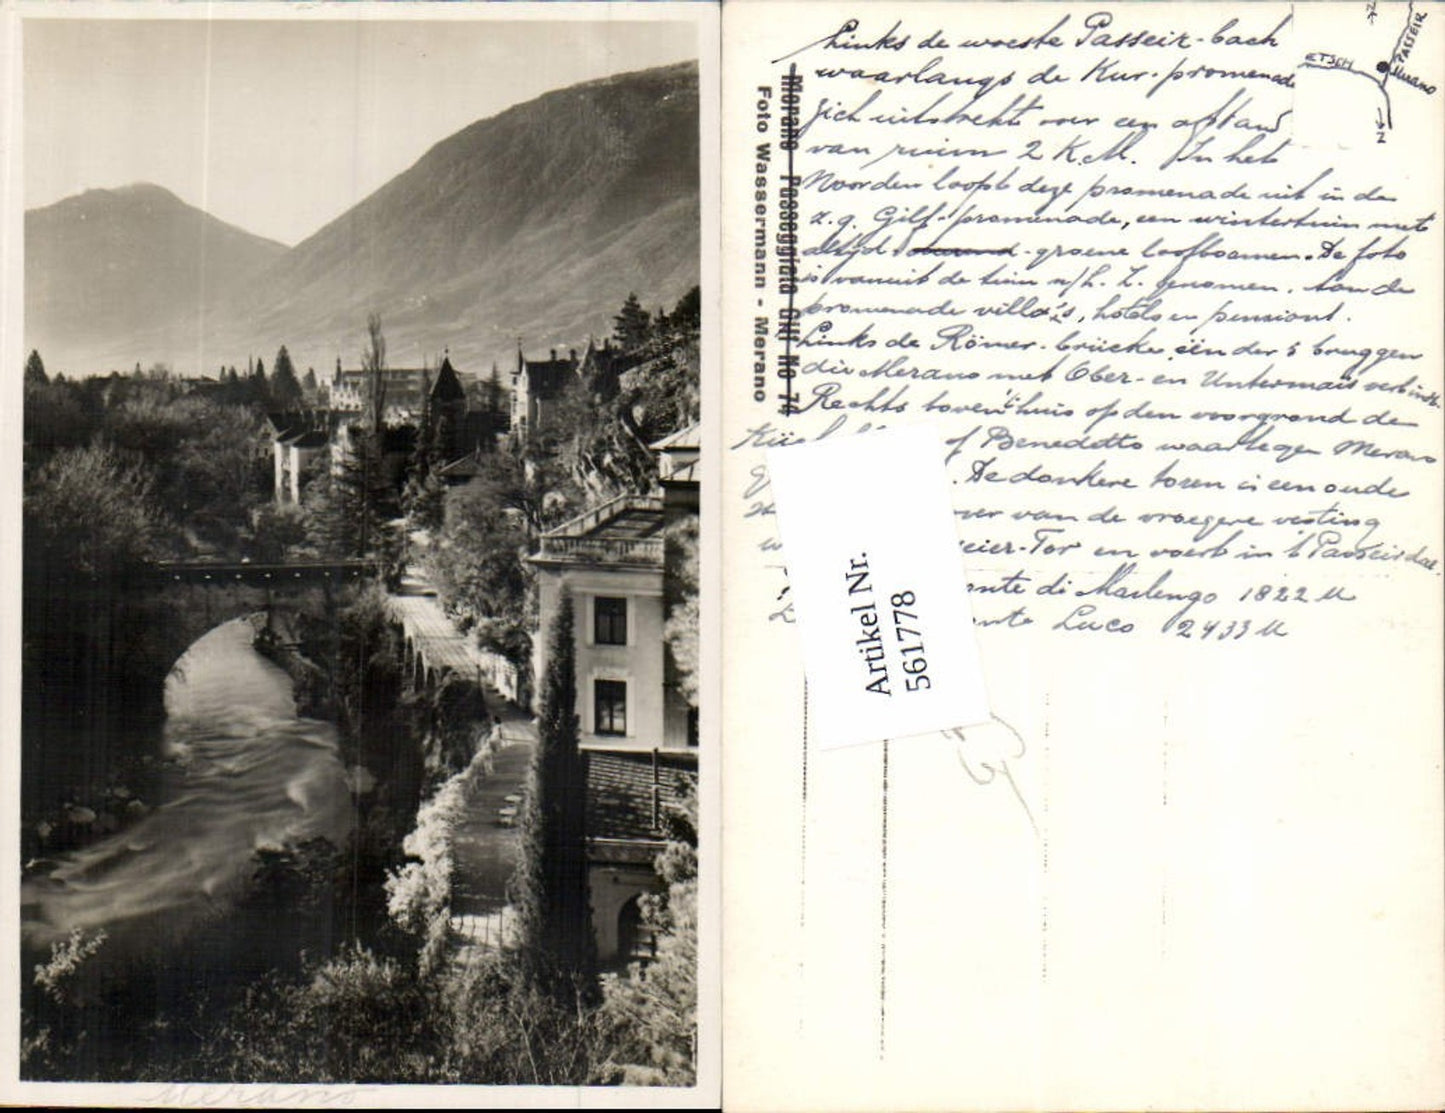 Merano
Links de woeste Passeir-bach
waarlangs de Kur-promenade
zich uitstrekt over een afstand
van ruim 2 K.M. In het
Noorden loopt deze promenade uit in de
z.g. Gilf-promenade, een wintertuin met
altijd groene loofboomen. De foto
is vanuit de tuin genomen. Aan de
promenade villa's, hotels en pensions.
Links de Römer-brücke, één der 5 bruggen
die Merano met Ober- en Untermais verbindt.
Rechts boven 't huis op den voorgrond de
of Benedetto waartegen Merano
. De donkere toren is een oude
van de vroegere vesting
eier-Tor en voert in 't Passeirdal.
onte di Marlengo 1822 M
onte Luco 2433 M
ETSCH
PASSEIR
Merano
Z
Z
Merano - Passeggiata Gilf No 74
Foto Wassermann - Merano
Artikel Nr.
561778